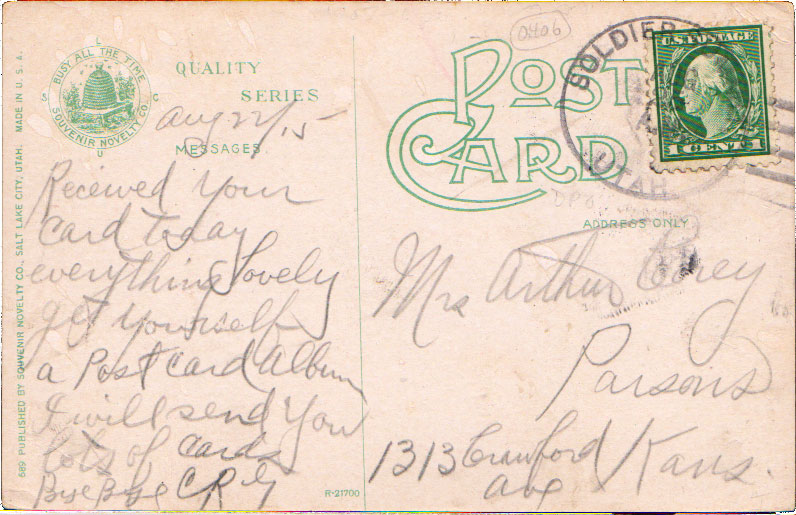 689 PUBLISHED BY SOUVENIR NOVELTY CO., SALT LAKE CITY, UTAH. MADE IN U. S. A.
BUSY ALL THE TIME
SOUVENIR NOVELTY CO.
S L C U
QUALITY
SERIES
Aug 22/15
MESSAGES.
Received Your
Card today
everything Lovely
get Yourself
a Post Card Album
I will send You
lots of Cards
Bye Bye C R G
R-21700
0406
POST
CARD
SOLDIER
UTAH
U.S. POSTAGE
1 CENT 1
DPO
ADDRESS ONLY
Mrs Arthur Corey
Parsons
1313 Crawford Kans.
Ave